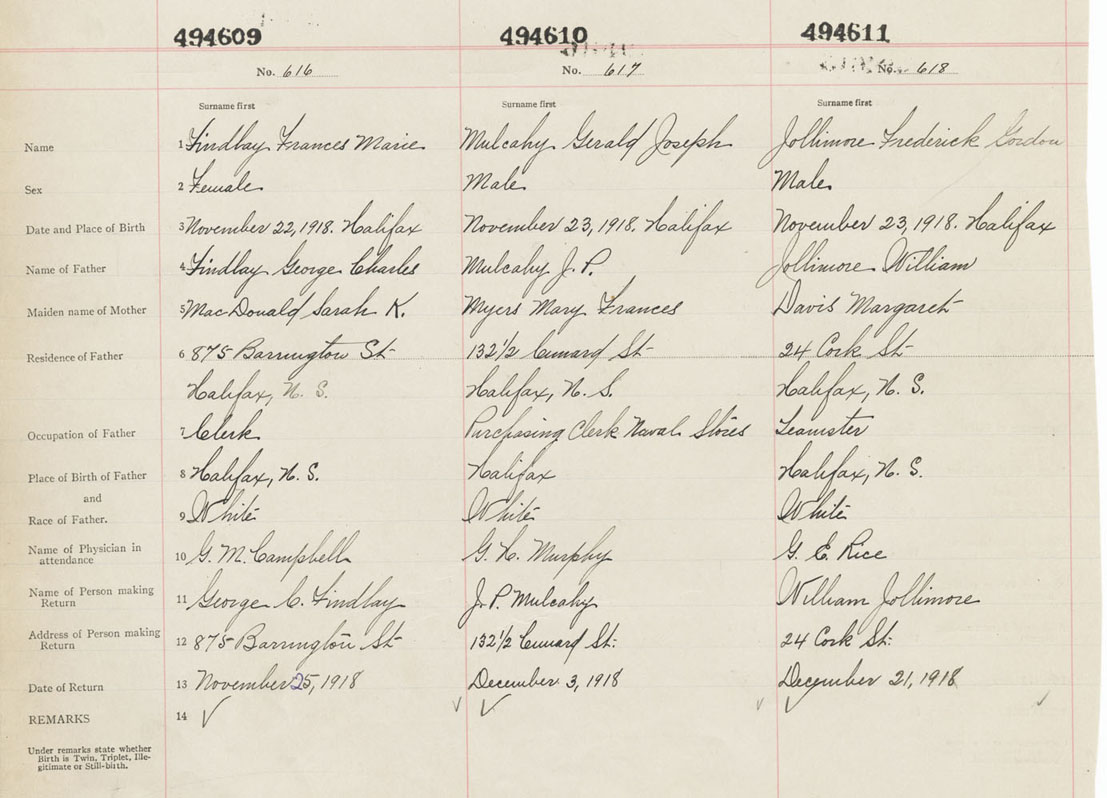 494609 494610 494611
No. 616 No. 617 No. 618
Surname first Surname first Surname first
Name 1 Findlay Frances Marie Mulcahy Gerald Joseph Jollimore Frederick Gordon
Sex 2 Female Male Male
Date and Place of Birth 3 November 22, 1918. Halifax November 23, 1918. Halifax November 23, 1918. Halifax
Name of Father 4 Findlay George Charles Mulcahy J. P. Jollimore William
Maiden name of Mother 5 MacDonald Sarah K. Myers Mary Frances Davis Margaret
Residence of Father 6 875 Barrington St 132 1/2 Cunard St 24 Cork St
Halifax, N. S. Halifax, N. S. Halifax, N. S.
Occupation of Father 7 Clerk Purchasing Clerk Naval Stores Teamster
Place of Birth of Father 8 Halifax, N. S. Halifax Halifax, N. S.
and
Race of Father. 9 White White White
Name of Physician in
attendance 10 G. M. Campbell G. H. Murphy G. E. Rice
Name of Person making
Return 11 George C. Findlay J. P. Mulcahy William Jollimore
Address of Person making
Return 12 875 Barrington St 132 1/2 Cunard St. 24 Cork St.
Date of Return 13 November 25, 1918 December 3, 1918 December 21, 1918
REMARKS 14
Under remarks state whether
Birth is Twin, Triplet, Ille-
gitimate or Still-birth.